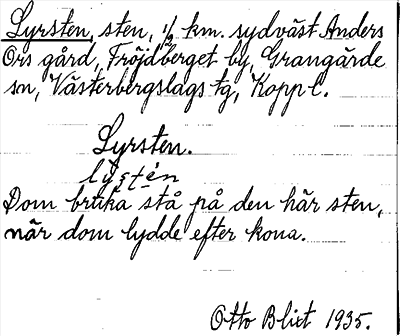 Lyrsten, sten, 1/2 km. sydväst Anders
Ors gård, Fröjdberget by, Grangärde
sn, Västerbergslags tg, Kopp l.
Lyrsten.
ly̜ṣtèn
Dom bruka stå på den här sten,
när dom lydde efter kona.
Otto Blixt 1935.